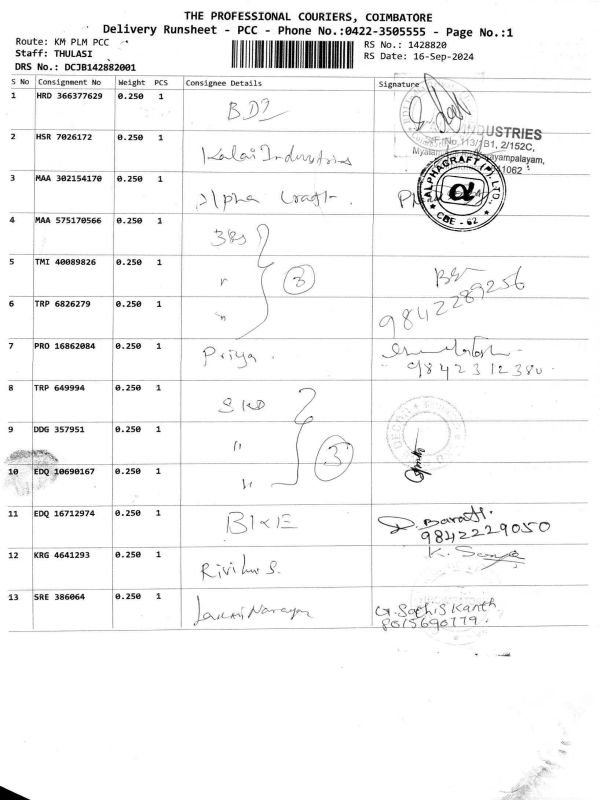 THE PROFESSIONAL COURIERS, COIMBATORE
Delivery Runsheet - PCC - Phone No.:0422-3505555 - Page No.:1
Route: KM PLM PCC
Staff: THULASI
DRS No.: DCJB142882001
RS No.: 1428820
RS Date: 16-Sep-2024
S No Consignment No Weight PCS Consignee Details Signature
1 HRD 366377629 0.250 1
INDUSTRIES
113/1B1, 2/152C,
2 HSR 7026172 0.250 1 Kalai Industries
3 MAA 302154170 0.250 1 Alpha Craft.
ALPHACRAFT (P) LTD.,
α
CBE - 62
4 MAA 575170566 0.250 1
5 TMI 40089826 0.250 1 " 3
6 TRP 6826279 0.250 1 " 9842289256
7 PRO 16862084 0.250 1 Priya.
9842312380
8 TRP 649994 0.250 1 SKD
9 DDG 357951 0.250 1 " 3
10 EDQ 10690167 0.250 1 "
11 EDQ 16712974 0.250 1 D. Barath.
9842229050
12 KRG 4641293 0.250 1
13 SRE 386064 0.250 1 Laxmi Narayan G. Sathis Kanth
8015690779.